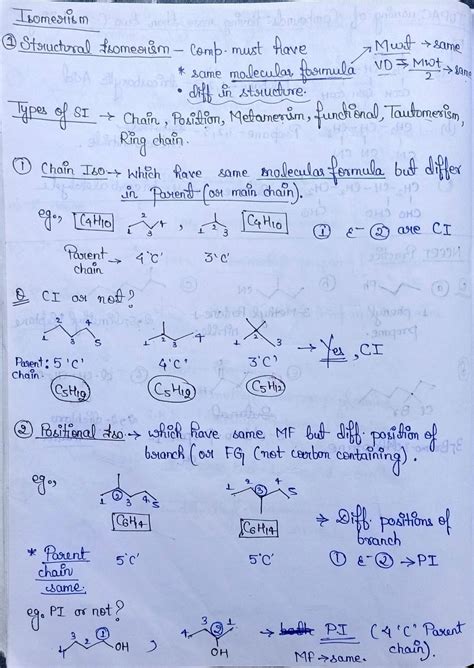 Isomerism
① Structural Isomerism - Comp. must have
* same molecular formula → Mwt → same
VD = Mwt/2 → same
• diff in structure.
Types of SI → Chain, Position, Metamerism, functional, Tautomerism,
Ring chain.
① Chain Iso → which have same molecular formula but differ
in Parent (or main chain).
eg., C4H10 1 2 3 4 , 1 2 3 C4H10 ① & ② are CI
Parent chain → 4'C' 3'C'
Q CI or not?
1 2 3 4 5 1 2 3 4 1 2 3 → Yes, CI
Parent chain: 5'C' 4'C' 3'C'
C5H12 C5H12 C5H12
② Positional Iso → which have same MF but diff. position of
branch (or FG (not carbon containing).
eg., 1 ② 3 4 5 1 2 ③ 4 5
C6H4 C6H14 → Diff. positions of
branch
* Parent chain same. 5'C' 5'C' ① & ② → PI
eg. PI or not?
4 3 2 ① OH , 4 3 ② 1 OH → PI (4'C' Parent
MF → same. chain).